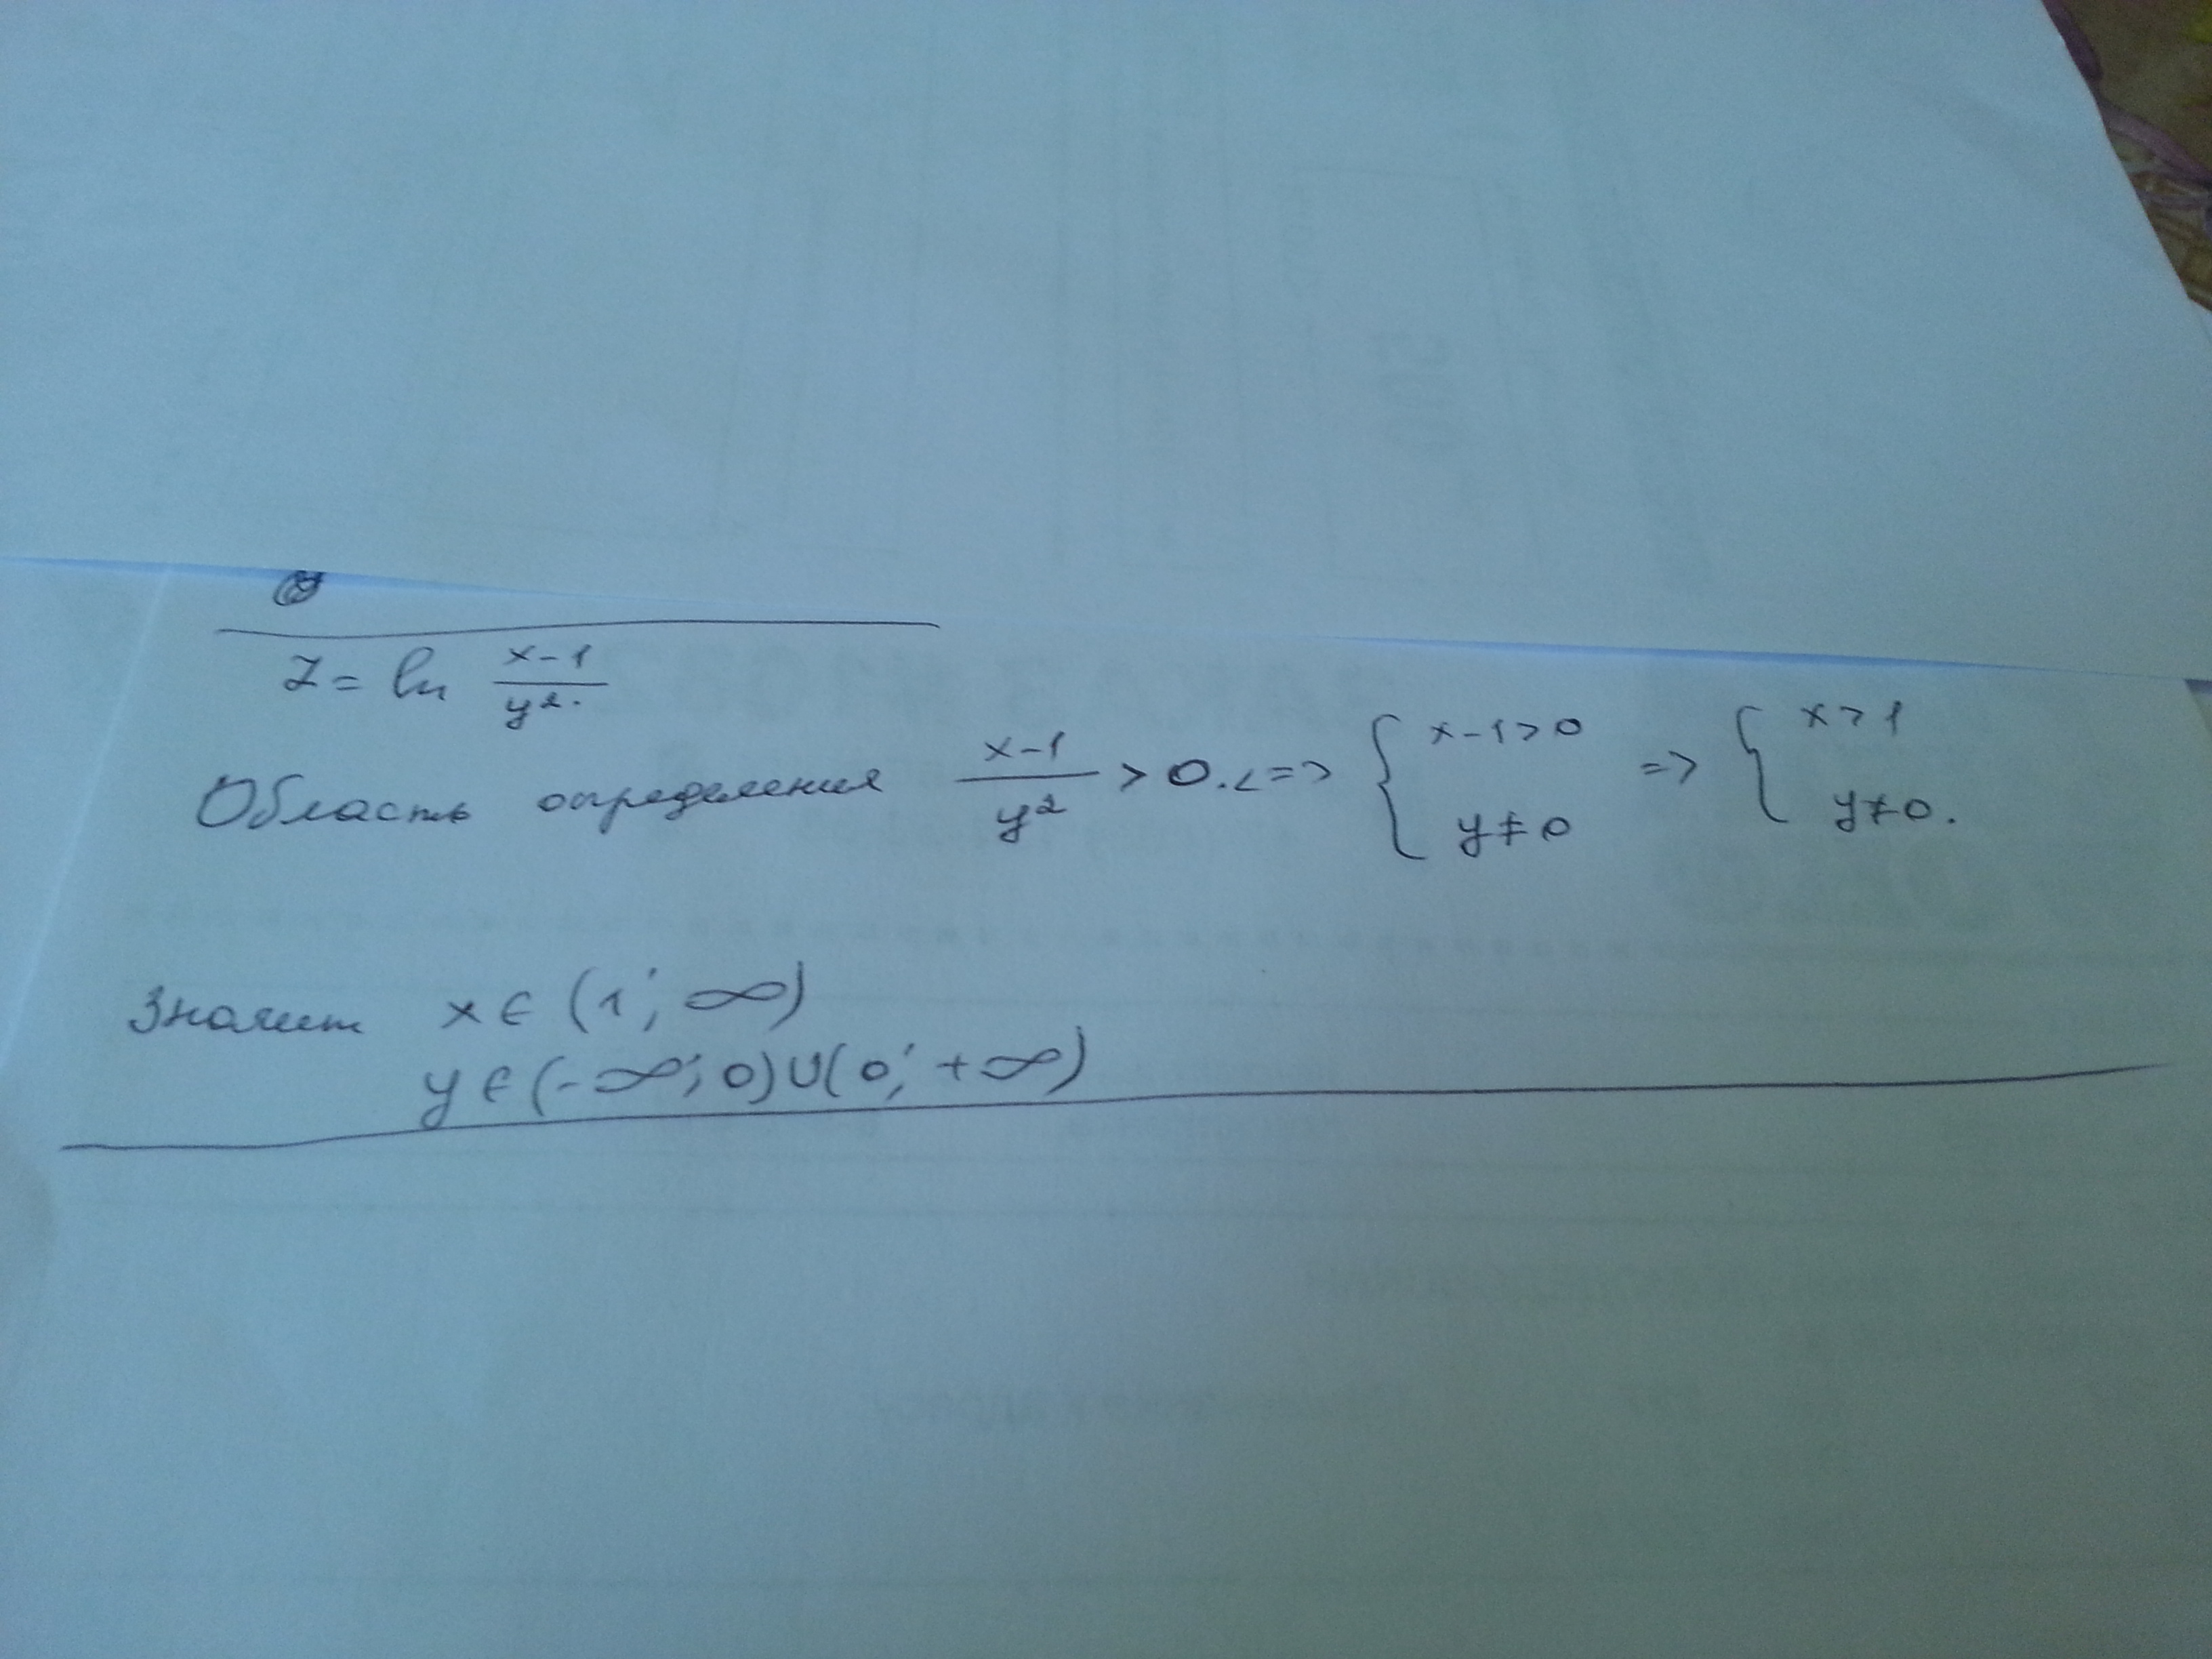 Z = ln (x-1)/y².
Область определения (x-1)/y² > 0. <=> { x-1>0 y≠0 => { x>1 y≠0.
Значит x ∈ (1; ∞)
y ∈ (-∞; 0) U (0; +∞)